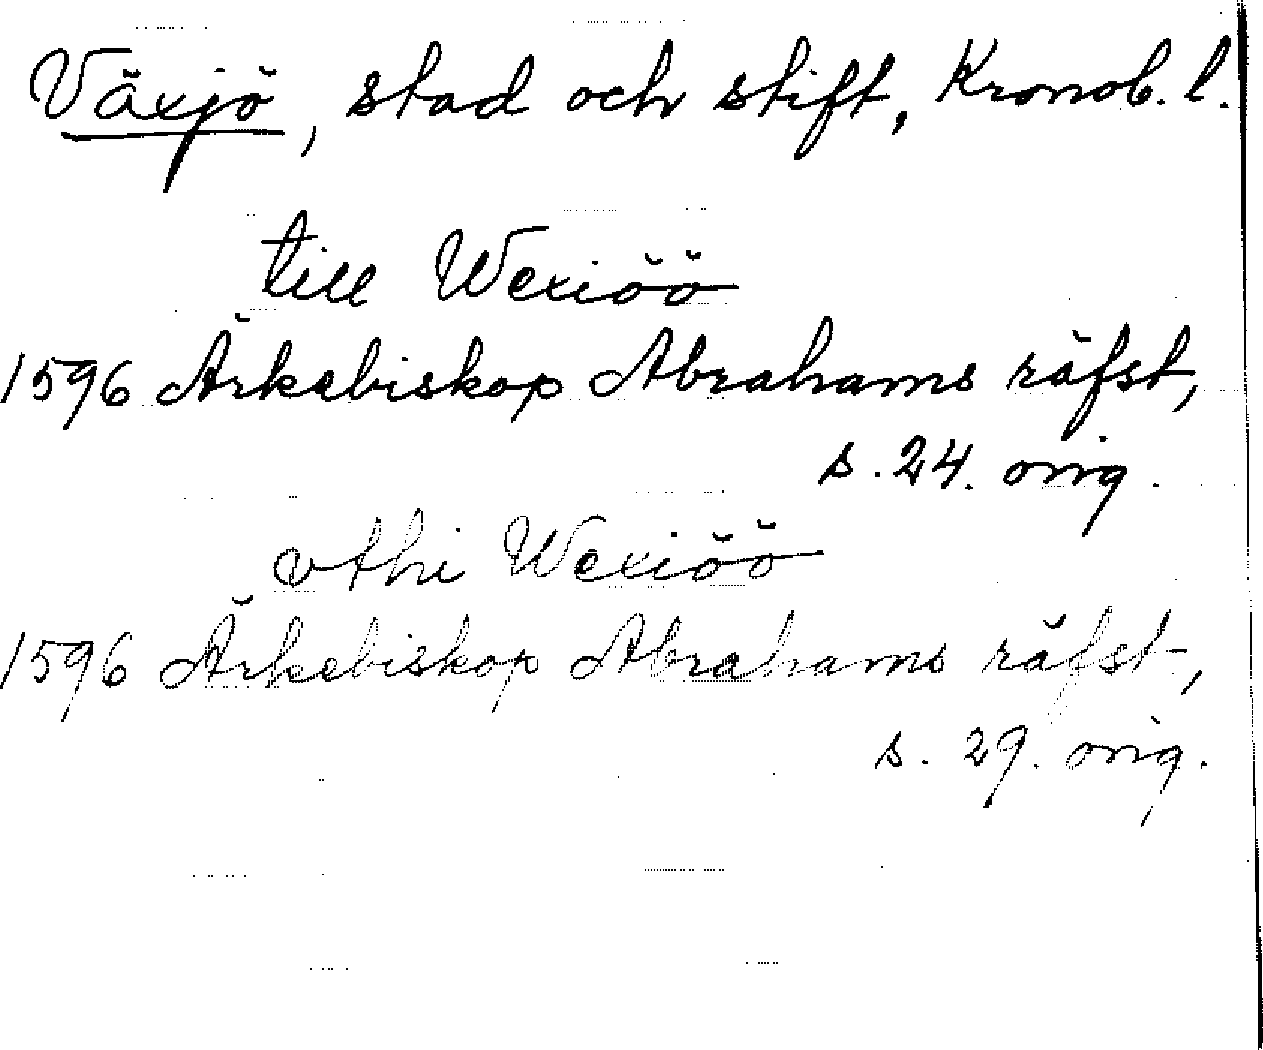 Växjö, stad och stift, Kronob. l.
till Wexiöö
1596 Ärkebiskop Abrahams räfst,
s. 24. orig.
vthi Wexiöö
1596 Ärkebiskop Abrahams räfst,
s. 29. orig.